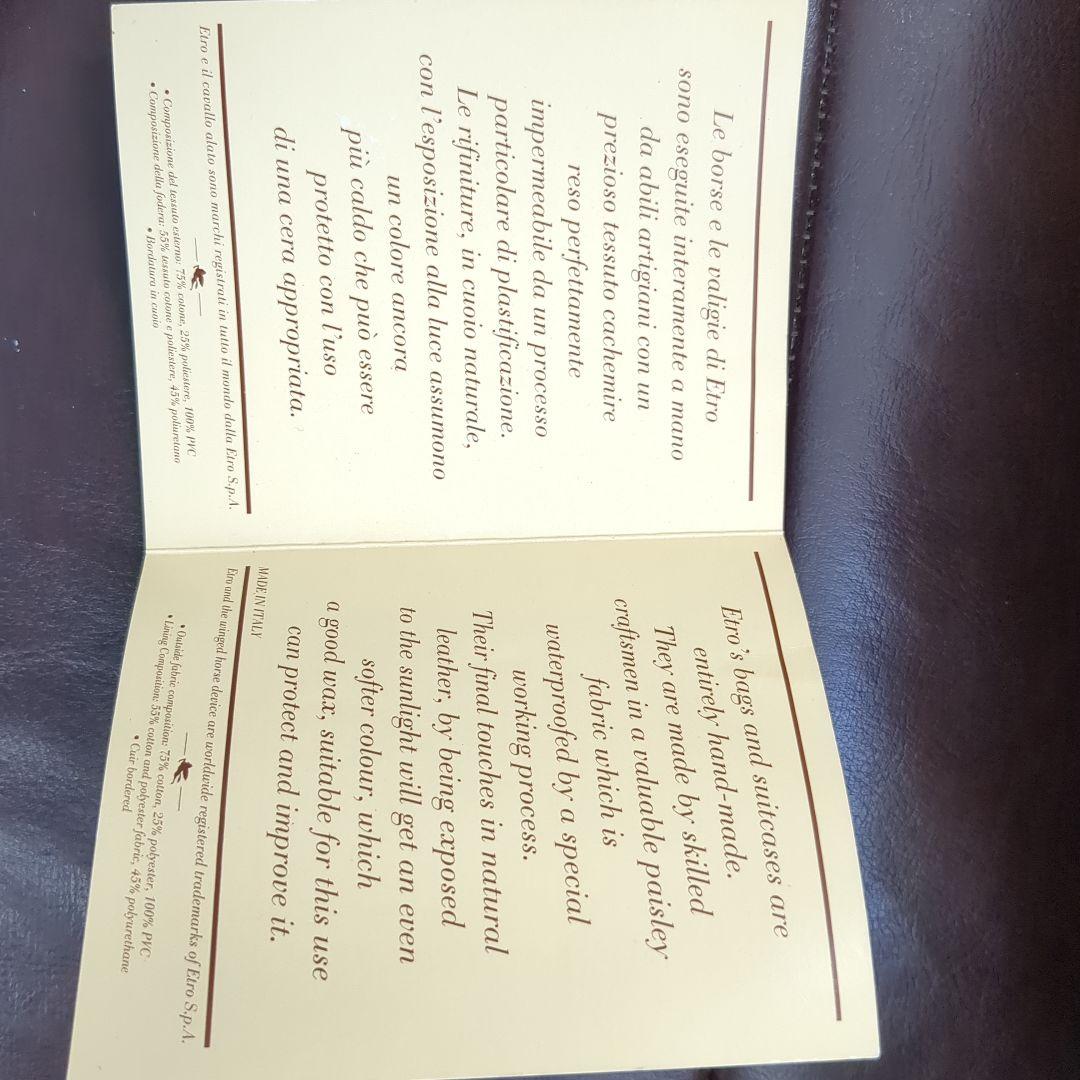 Le borse e le valigie di Etro
sono eseguite interamente a mano
da abili artigiani con un
prezioso tessuto cachemire
reso perfettamente
impermeabile da un processo
particolare di plastificazione.
Le rifiniture, in cuoio naturale,
con l'esposizione alla luce assumono
un colore ancora
più caldo che può essere
protetto con l'uso
di una cera appropriata.
Etro e il cavallo alato sono marchi registrati in tutto il mondo dalla Etro S.p.A.
• Composizione del tessuto esterno: 75% cotone, 25% poliestere, 100% PVC
• Composizione della fodera: 55% tessuto cotone e poliestere, 45% poliuretano
• Bordatura in cuoio
Etro's bags and suitcases are
entirely hand-made.
They are made by skilled
craftsmen in a valuable paisley
fabric which is
waterproofed by a special
working process.
Their final touches in natural
leather, by being exposed
to the sunlight will get an even
softer colour, which
a good wax, suitable for this use
can protect and improve it.
MADE IN ITALY
Etro and the winged horse device are worldwide registered trademarks of Etro S.p.A.
• Outside fabric composition: 75% cotton, 25% polyester, 100% PVC
• Lining Composition: 55% cotton and polyester fabric, 45% polyurethane
• Cuir bordered